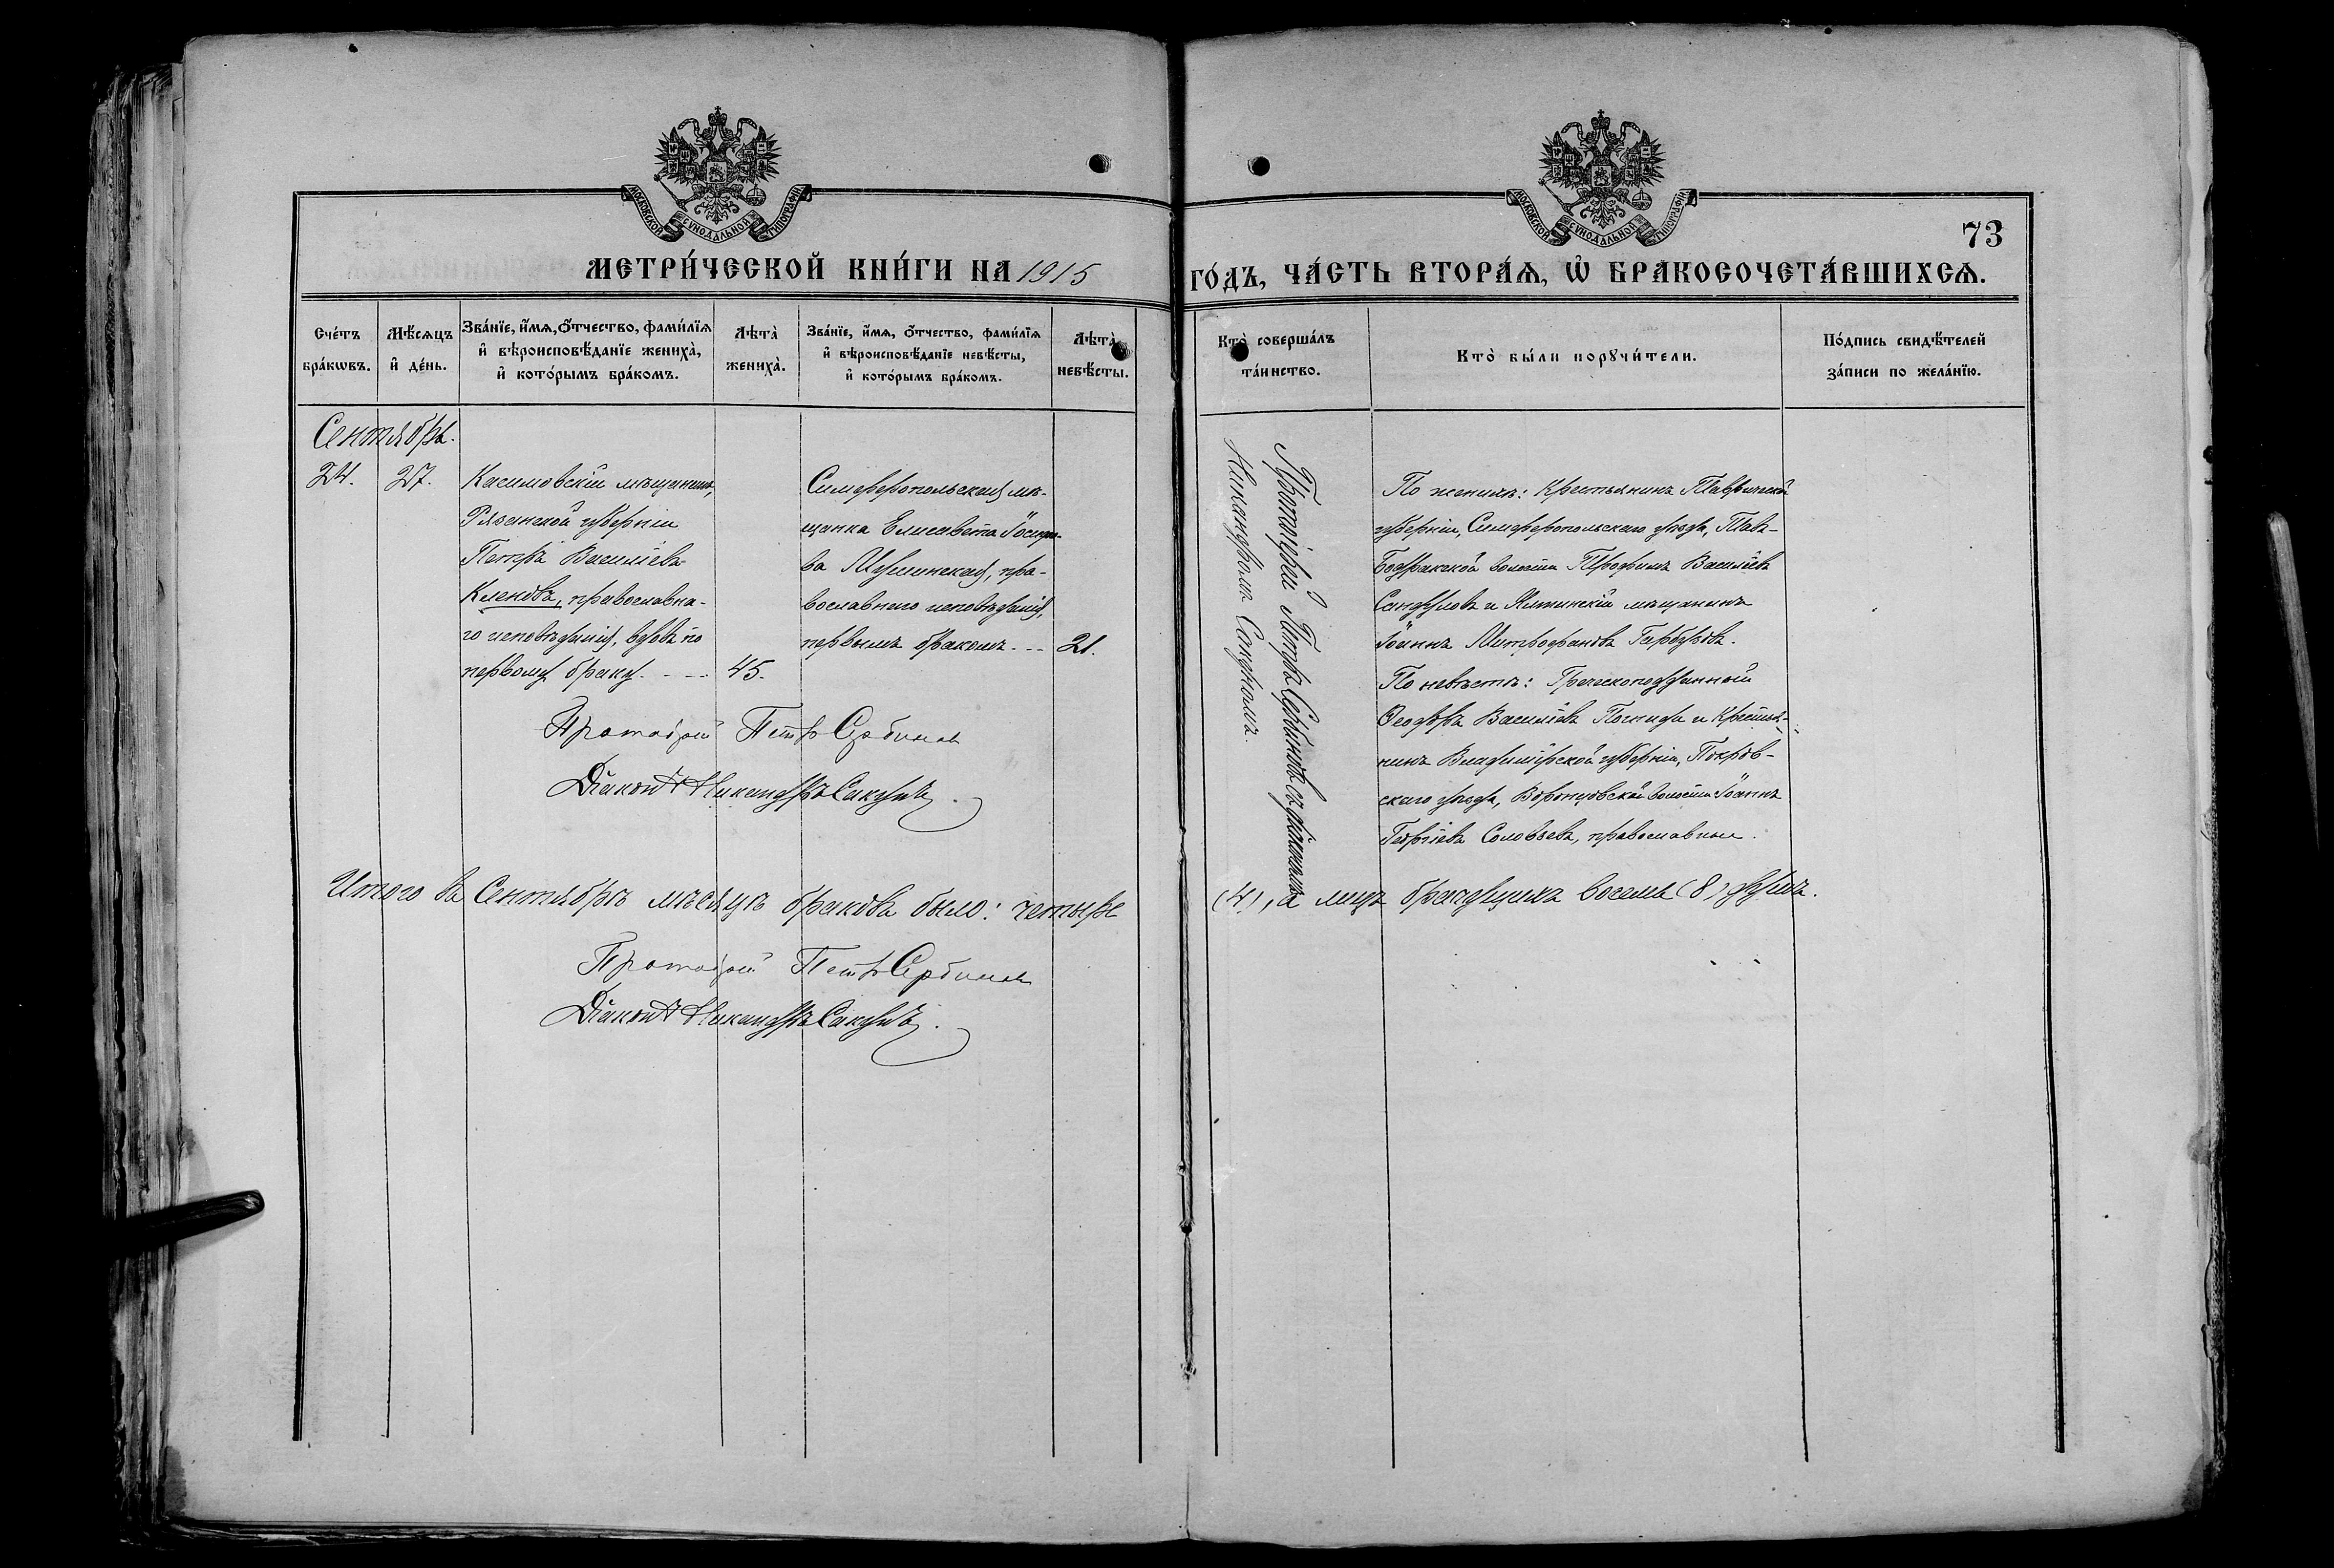 МОСКОВСКОЙ СѴНОДАЛЬНОЙ ТИПОГРАФІИ
МОСКОВСКОЙ СѴНОДАЛЬНОЙ ТИПОГРАФІИ
73
МЕТРИ́ЧЕСКОЙ КНИ́ГИ НА 1915
ГО́ДЪ, ЧА́СТЬ ВТОРА́Ѧ, Ѽ БРАКОСОЧЕТА́ВШИХСѦ.
Сче́тъ бра́кѡвъ.
Мѣ́сѧцъ и҆ де́нь.
Зва́нїе, и҆́мѧ, ѻ҆́тчество, фами́лїѧ
и҆ вѣроисповѣ́данїе жениха̀,
и҆ кото́рымъ бра́комъ.
Лѣта̀ жениха̀.
Зва́нїе, и҆́мѧ, ѻ҆́тчество, фами́лїѧ
и҆ вѣроисповѣ́данїе невѣ́сты,
и҆ кото́рымъ бра́комъ.
Лѣта̀ невѣ́сты.
Кто̀ соверша́лъ
та́инство.
Кто̀ бы́ли порꙋчи́тели.
По́дпись свидѣ́телей
за́писи по жела́нїю.
Сентябрь.
24.
27.
Касимовскій мѣщанинъ,
Рязанской губерніи
Петръ Васильевъ
Кленовъ, православна-
го исповѣданія, вдовъ по
первому браку. - - -
45.
Симферопольская мѣ-
щанка Елисавета Іосифо-
ва, пра-
вославнаго исповѣданія,
первымъ бракомъ - - -
21.
Протоіерей Петръ Сербиновъ съ діакономъ
Никандромъ Сакунъ.
По женихѣ: Крестьянинъ Таврической
губерніи, Симферопольскаго уѣзда, Тавъ-
Бодракской волости Трофимъ Васильевъ
и Ялтинскій мѣщанинъ
Іоаннъ Митрофановъ Гарбузовъ.
По невѣстѣ: Греческоподданный
Ѳеодоръ Васильевъ и Крестья-
нинъ Владимірской губерніи, Покров-
скаго уѣзда, Воронцовской волости Іоаннъ
Георгіевъ Соловьевъ, православные.
Протоіерей Петръ Сербиновъ
Діаконъ Никандръ Сакунъ.
Итого въ Сентябрѣ мѣсяцѣ браковъ было: четыре
(4), а лицъ брачущихся восемь (8) душъ.
Протоіерей Петръ Сербиновъ
Діаконъ Никандръ Сакунъ.